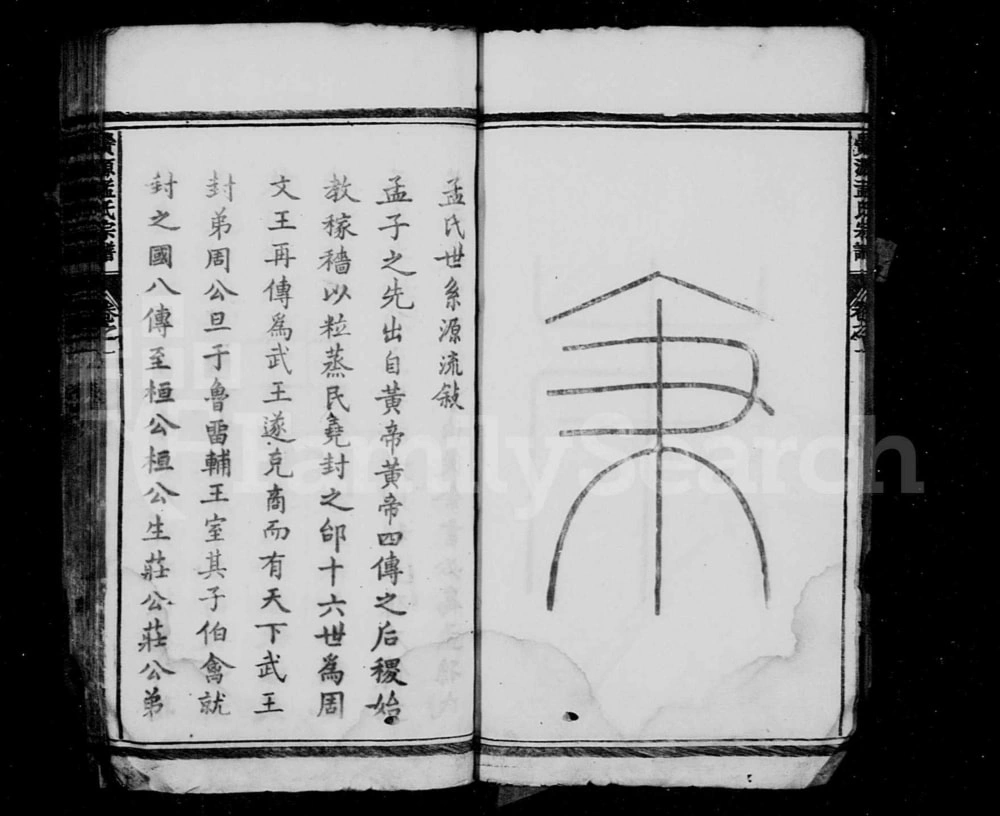 兼
孟氏世系源流敍
孟子之先出自黃帝黃帝四傳之后稷始
教稼穡以粒蒸民堯封之邰十六世為周
文王再傳為武王遂克商而有天下武王
封弟周公旦于魯留輔王室其子伯禽就
封之國八傳至桓公桓公生莊公莊公弟
源孟氏宗譜
卷之一
FamilySearch